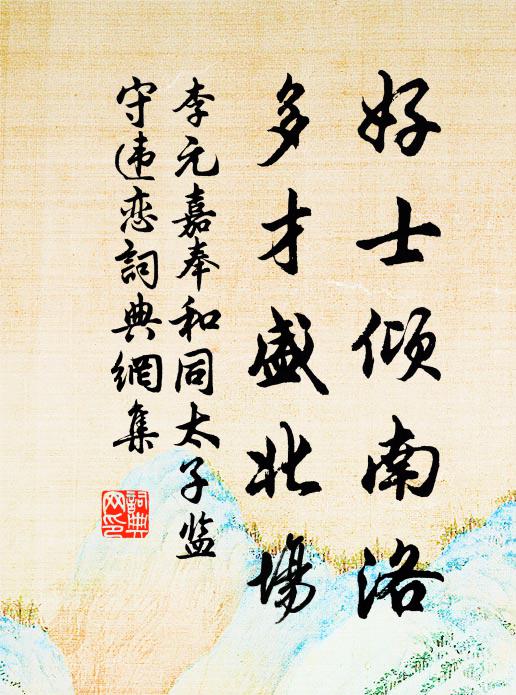 好士倾南洛
多才盛北場
李元嘉奉和同太子监
守违恋詞典網集
詞典
网印